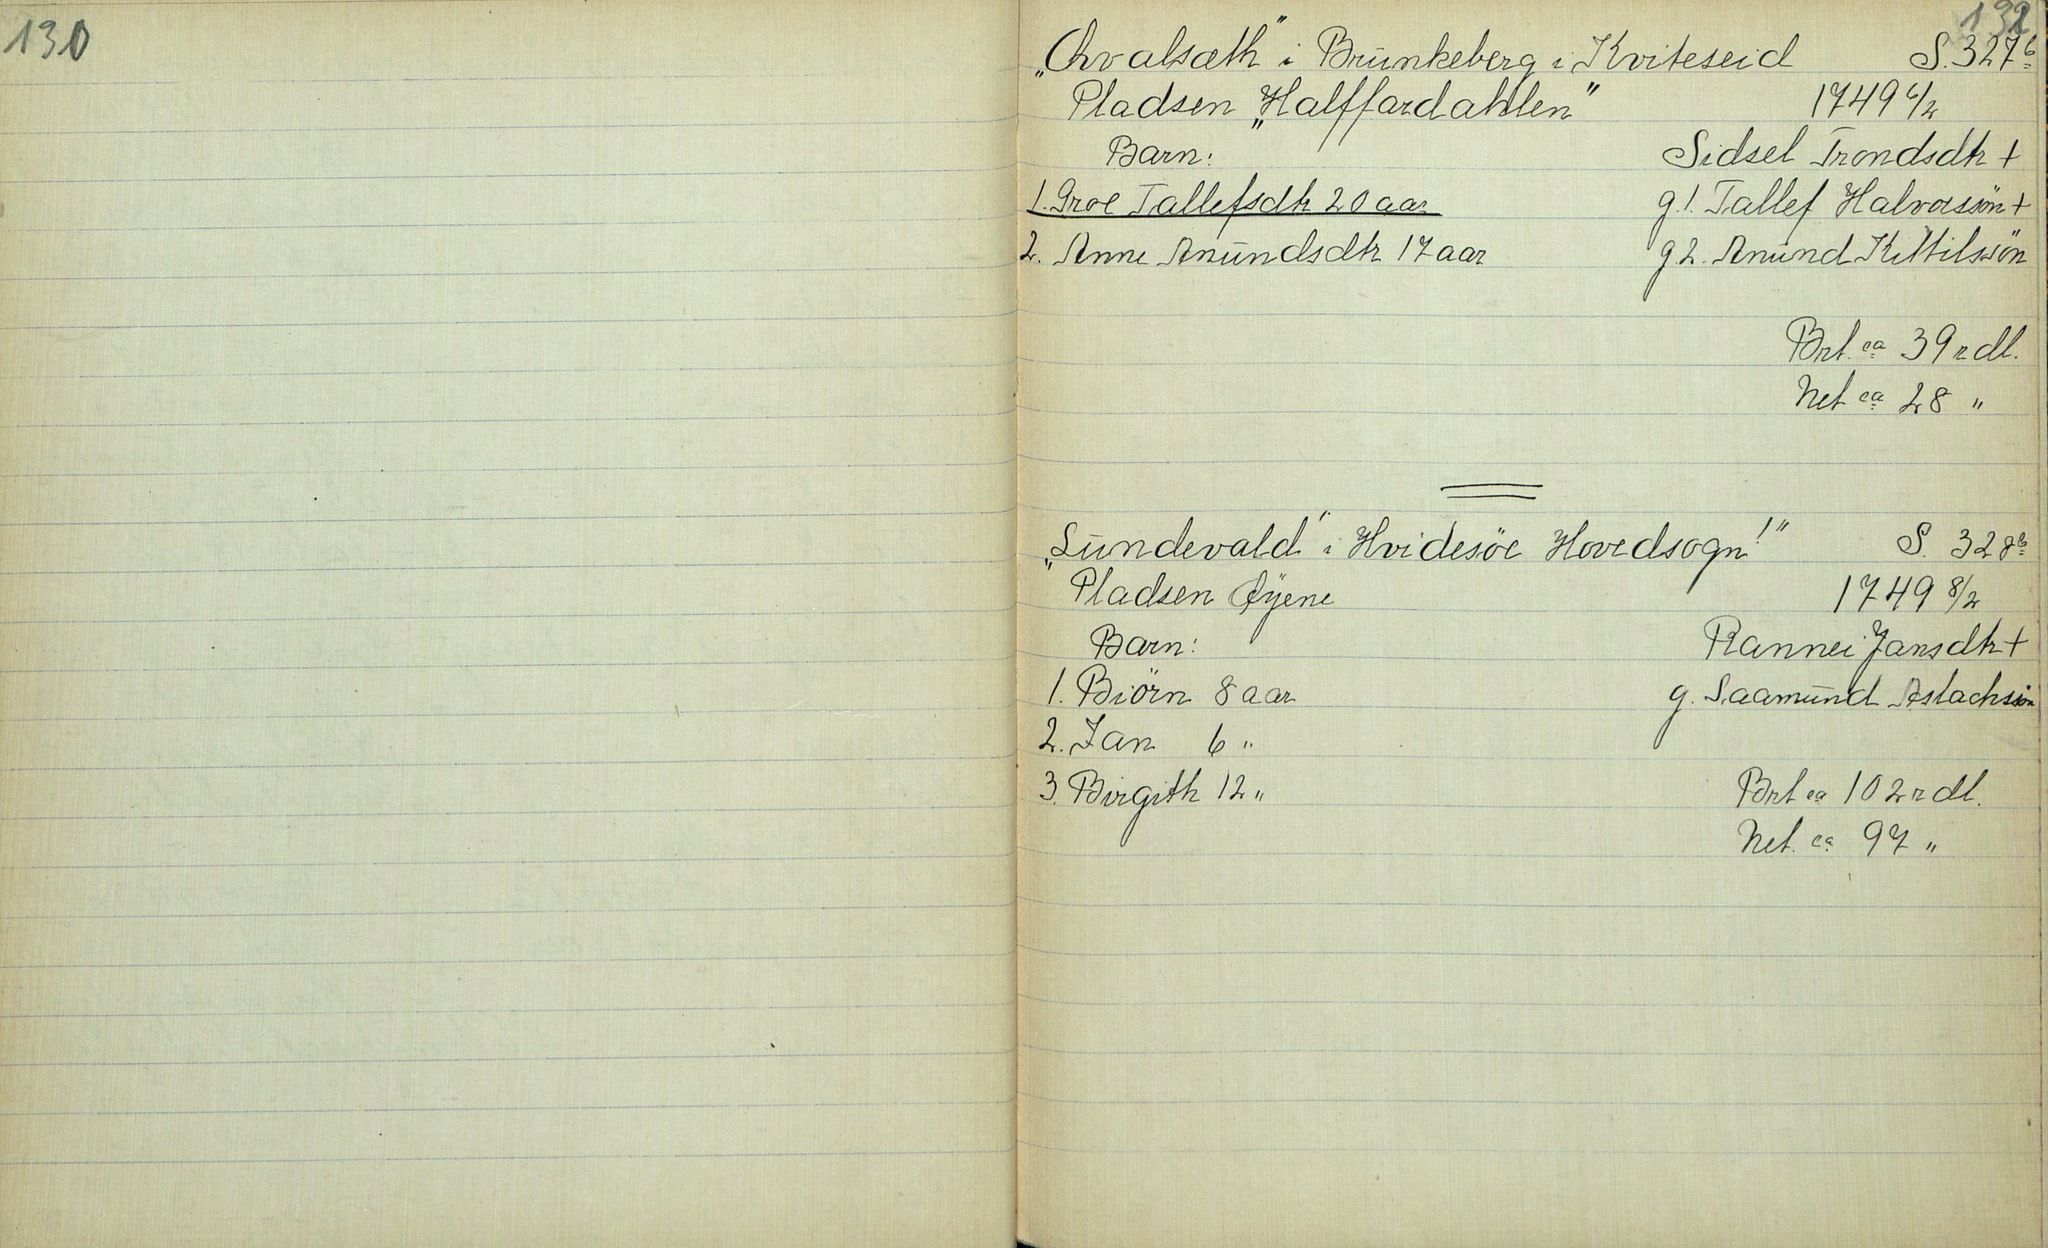 130
131
„Qvalsæth" i Brunkeberg i Kviteseid S. 327b
Pladsen „Halffardahlen" 1749 6/2
Barn: Sidsel Trondsdtr +
1. Groe Tallefsdtr 20 aar g. 1. Tallef Halvorssön +
2. Anne Anundsdtr 17 aar g 2. Anund Kittilssön
Brt. ca 39 rdl.
Net ca 28 "
„Lundevald" i Hvidesöe Hovedsogn!" S. 328b
Pladsen Öyene 1749 8/2
Barn: Rannei Jansdtr +
1. Biörn 8 aar g. Saamund Aslachsön
2. Jan 6 "
3. Birgith 12 " Brt ca 102 rdl.
Net. ca 97 "